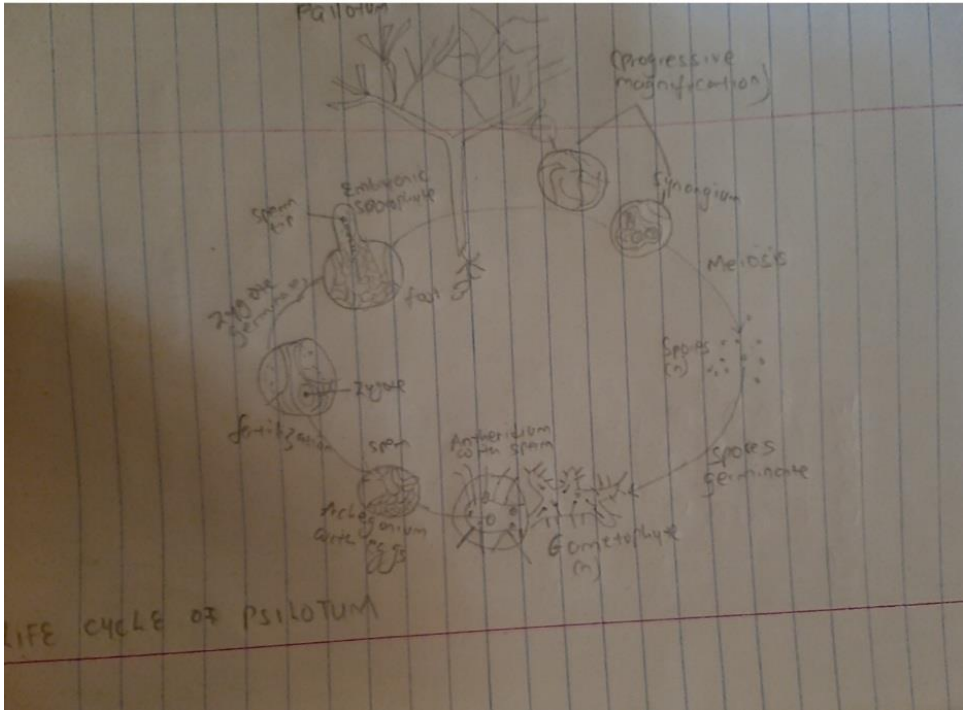 (progressive
magnification)
Synangium
Meiosis
Spores
(n)
Spores
germinate
Gametophyte
(n)
Antheridium
with sperm
sperm
Archegonium
with eggs
fertilization
Zygote
Zygote
Embryonic
foot
LIFE CYCLE OF PSILOTUM